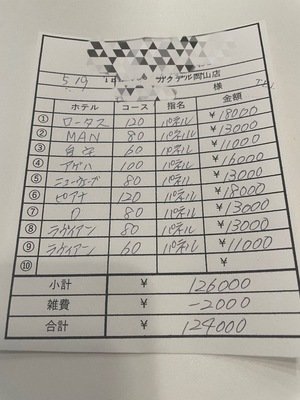 ガクデル岡山店
5/9 様
ホテル コース 指名 金額
① ロータス 120 パネル ¥18000
② MAN 80 パネル ¥13000
③ 自宅 60 パネル ¥11000
④ アゲハ 100 パネル ¥16000
⑤ ニューウェーブ 80 パネル ¥13000
⑥ ピアナ 120 パネル ¥18000
⑦ 80 パネル ¥13000
⑧ ラヴィアン 80 パネル ¥13000
⑨ ラヴィアン 60 パネル ¥11000
⑩ ¥
小計 ¥ 126000
雑費 ¥ -2000
合計 ¥ 124000